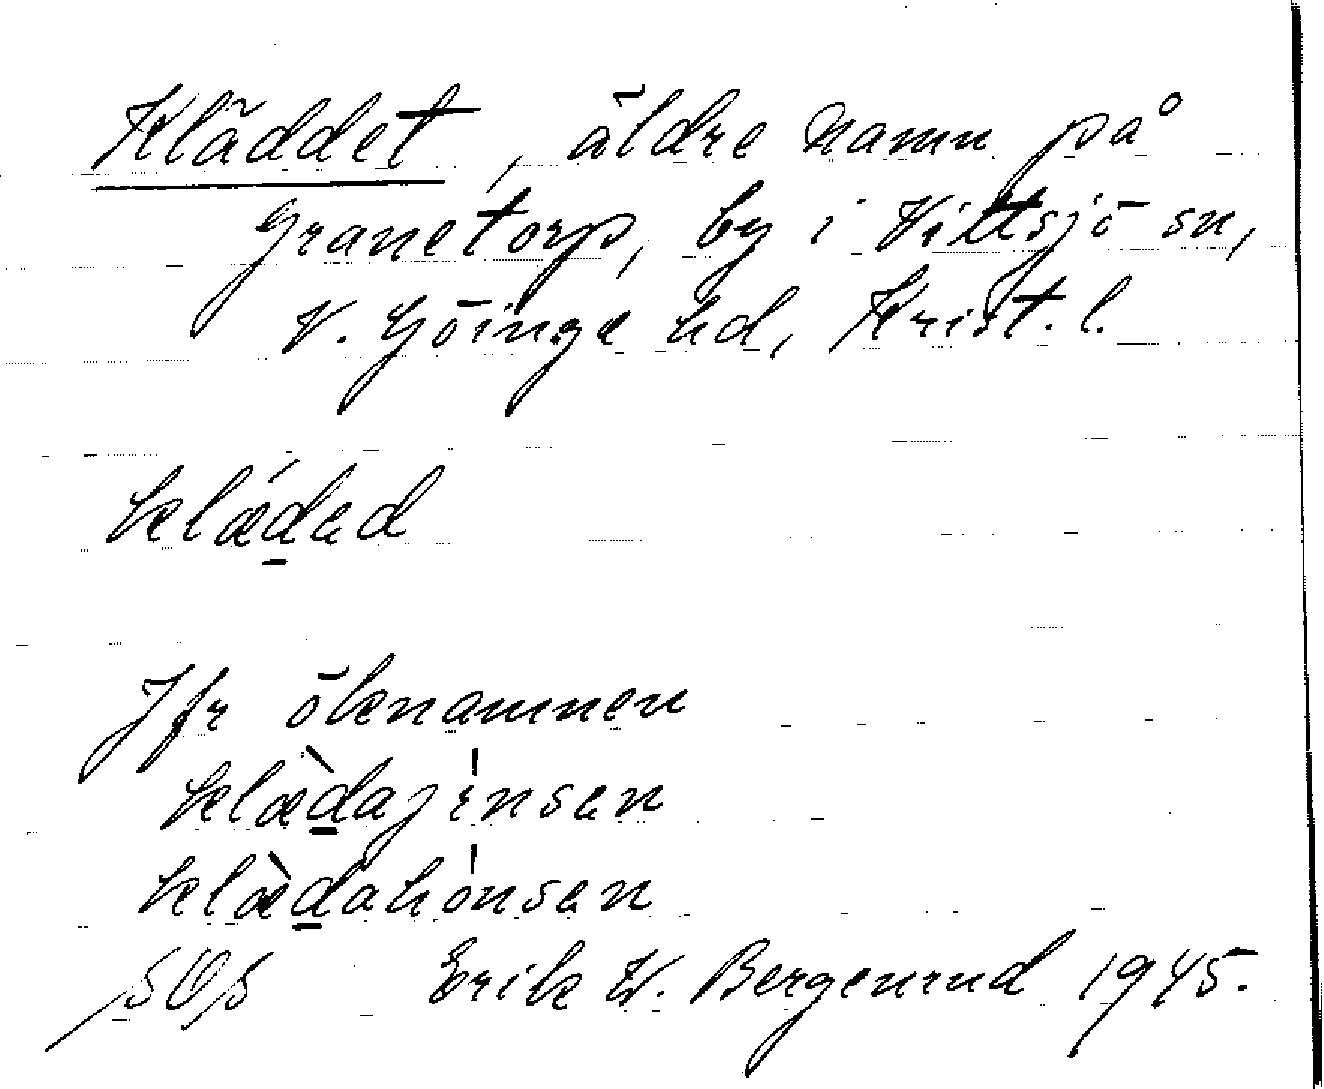 Kläddet, äldre namn på
Granetorp, by i Vittsjö sn,
V. Göinge hd, Krist. l.
klǽdad
Jfr öknamnen
klæ̀dajínsan
klæ̀dahónsan
Erik W. Bergenrud 1945.